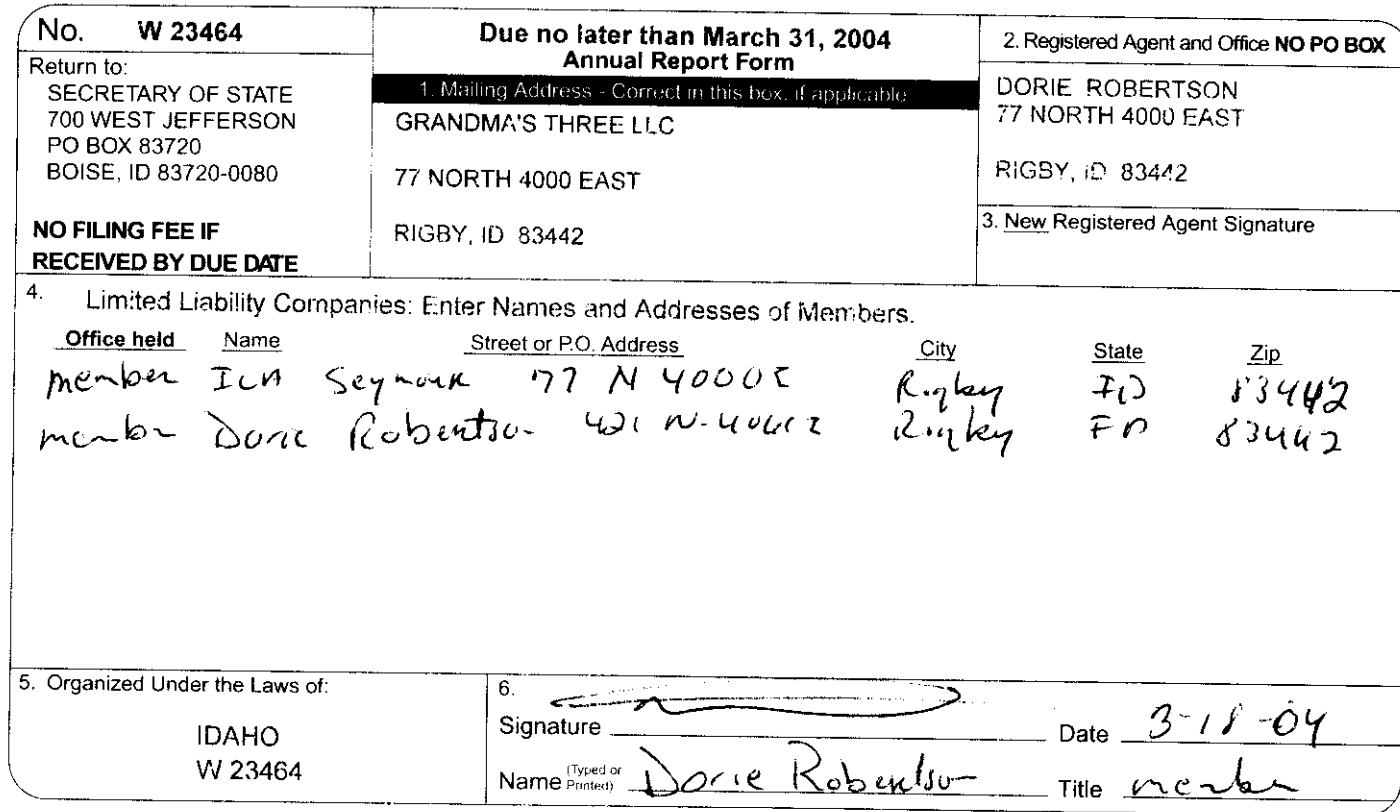 No. W 23464
Return to:
SECRETARY OF STATE
700 WEST JEFFERSON
PO BOX 83720
BOISE, ID 83720-0080
NO FILING FEE IF
RECEIVED BY DUE DATE
Due no later than March 31, 2004
Annual Report Form
1. Mailing Address - Correct in this box, if applicable
GRANDMA'S THREE LLC
77 NORTH 4000 EAST
RIGBY, ID 83442
2. Registered Agent and Office NO PO BOX
DORIE ROBERTSON
77 NORTH 4000 EAST
RIGBY, ID 83442
3. New Registered Agent Signature
4. Limited Liability Companies: Enter Names and Addresses of Members.
Office held Name Street or P.O. Address City State Zip
member Seymour 77 N 4000 E Rigby ID 83442
member Dorie Robertson N. Rigby ID 83442
5. Organized Under the Laws of:
IDAHO
W 23464
6.
Signature Date 3-18-04
Name (Typed or Printed) Dorie Robertson Title member